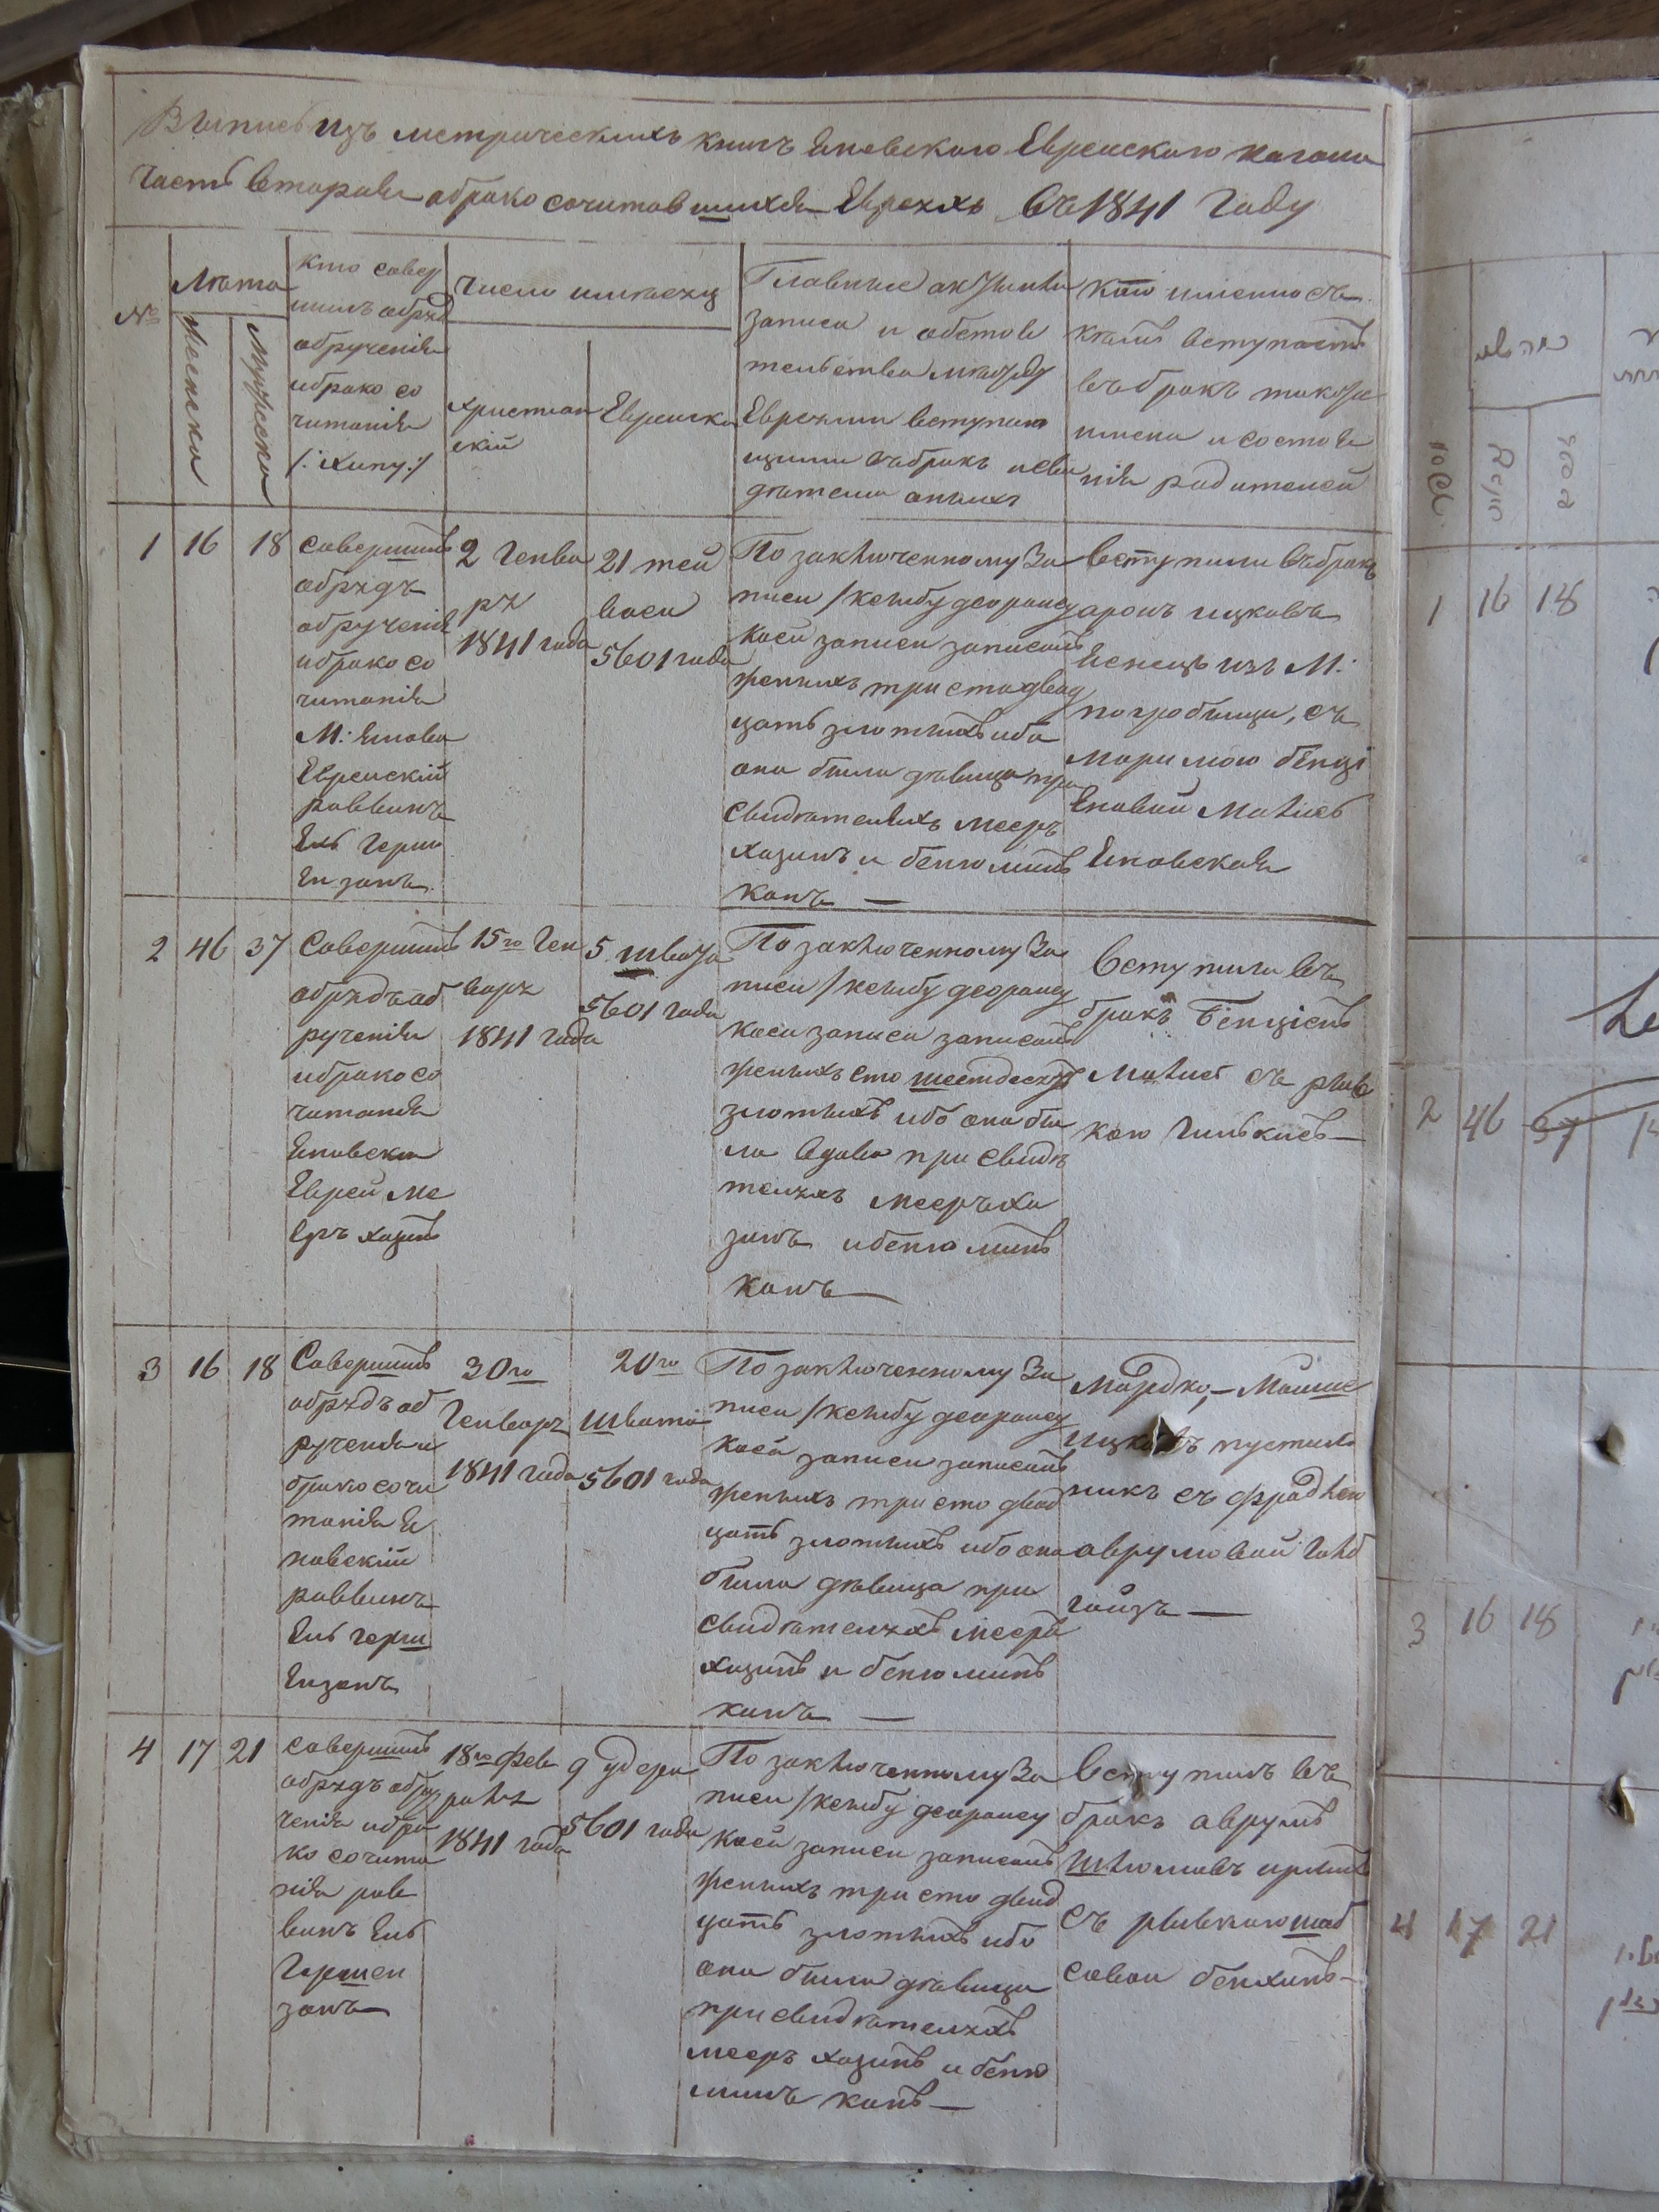 Выпись изъ метрическихъ книгъ Еновского Евреиского кагала
Часть вторая обракосочитавшихся Евреяхъ въ 1841 Году
№
Лѣта
Женска
Мужеска
Кто совер
шилъ обряд
обрученія
ибрако со
читанія
/:Хипу:/
Число имѣсяц
Христиан
скій
Евреиска
Главные акты или
записи и обстоя
тельства между
Евреями вступаю
щими въбракъ исви
дѣтели оныхъ
Кто именно съ
кѣмъ вступаетъ
въбракъ такоже
имена исостоя
нія родителей
1
16
18
Совершилъ
обрядъ
обрученія
ибрако со
читанія
М: Енова
Евреискій
раввинъ
Ель Герш
Ензонъ
2 Генва
ря
1841 года
21 тей
васи
5601 года
По заключенному За
писи /кетбу деораису
коей записи записалъ
женихъ триста двад
цать злотыхъ ибо
она была дѣвица при
Свидѣтеляхъ Мееръ
Хазинъ и бенюминъ
Канъ —
Вступили въбракъ
аронъ ицковъ
Енецъ изъ М:
погробищи, съ
Маримою бенці
Еновой Маліевъ
Еновская
2
46
37
Совершилъ
обрядъ об
рученія
ибрако со
читанія
Еновски
Еврей Ме
еръ Хазинъ
15го Ген
варя
1841 года
5 шважа
5601 года
По заключенному За
писи /кетбу деораису
коеи записи записалъ
женихъ сто шестдесятъ
злотыхъ ибо она бы
ла вдова при Свидѣ
теляхъ Мееръ Ха
зинъ ибенюминъ
Канъ —
Вступили въ
бракъ Бенціенъ
Маліевъ съ рыв
кою Гилькисъ —
3
16
18
Совершилъ
обрядъ об
рученія и
брако сочи
танія Е
новскій
раввинъ
Ель герш
Ензонъ
30го
Генваря
1841 года
20го
Швата
5601 года
По заключенному За
писи /кетбу деораису
коей записи записалъ
женихъ три сто двад
цать злотыхъ ибо она
была дѣвица при
Свидѣтеляхъ Мееръ
Хазинъ и бенюминъ
канъ —
Мордко, — Мошие
ицковъ пустил
никъ съ фрадлею
аврумовой Голд
гойзъ —
4
17
21
Совершилъ
обрядъ обру
ченія ибра
ко сочита
нія рав
винъ Ель
Гершен
зонъ
18го Фев
раля
1841 года
9 удера
5601 года
По заключенному За
писи /кетбу деораису
коей записи записалъ
женихъ три сто двад
цать злотыхъ ибо
она была дѣвица
при свидѣтеляхъ
Мееръ Хазинъ и беню
минъ Канъ —
Вступилъ въ
бракъ аврумъ
Шлюмовъ
съ рывкою шаб
совои бенхинъ —
1
16
18
2
46
37
3
16
18
4
17
21